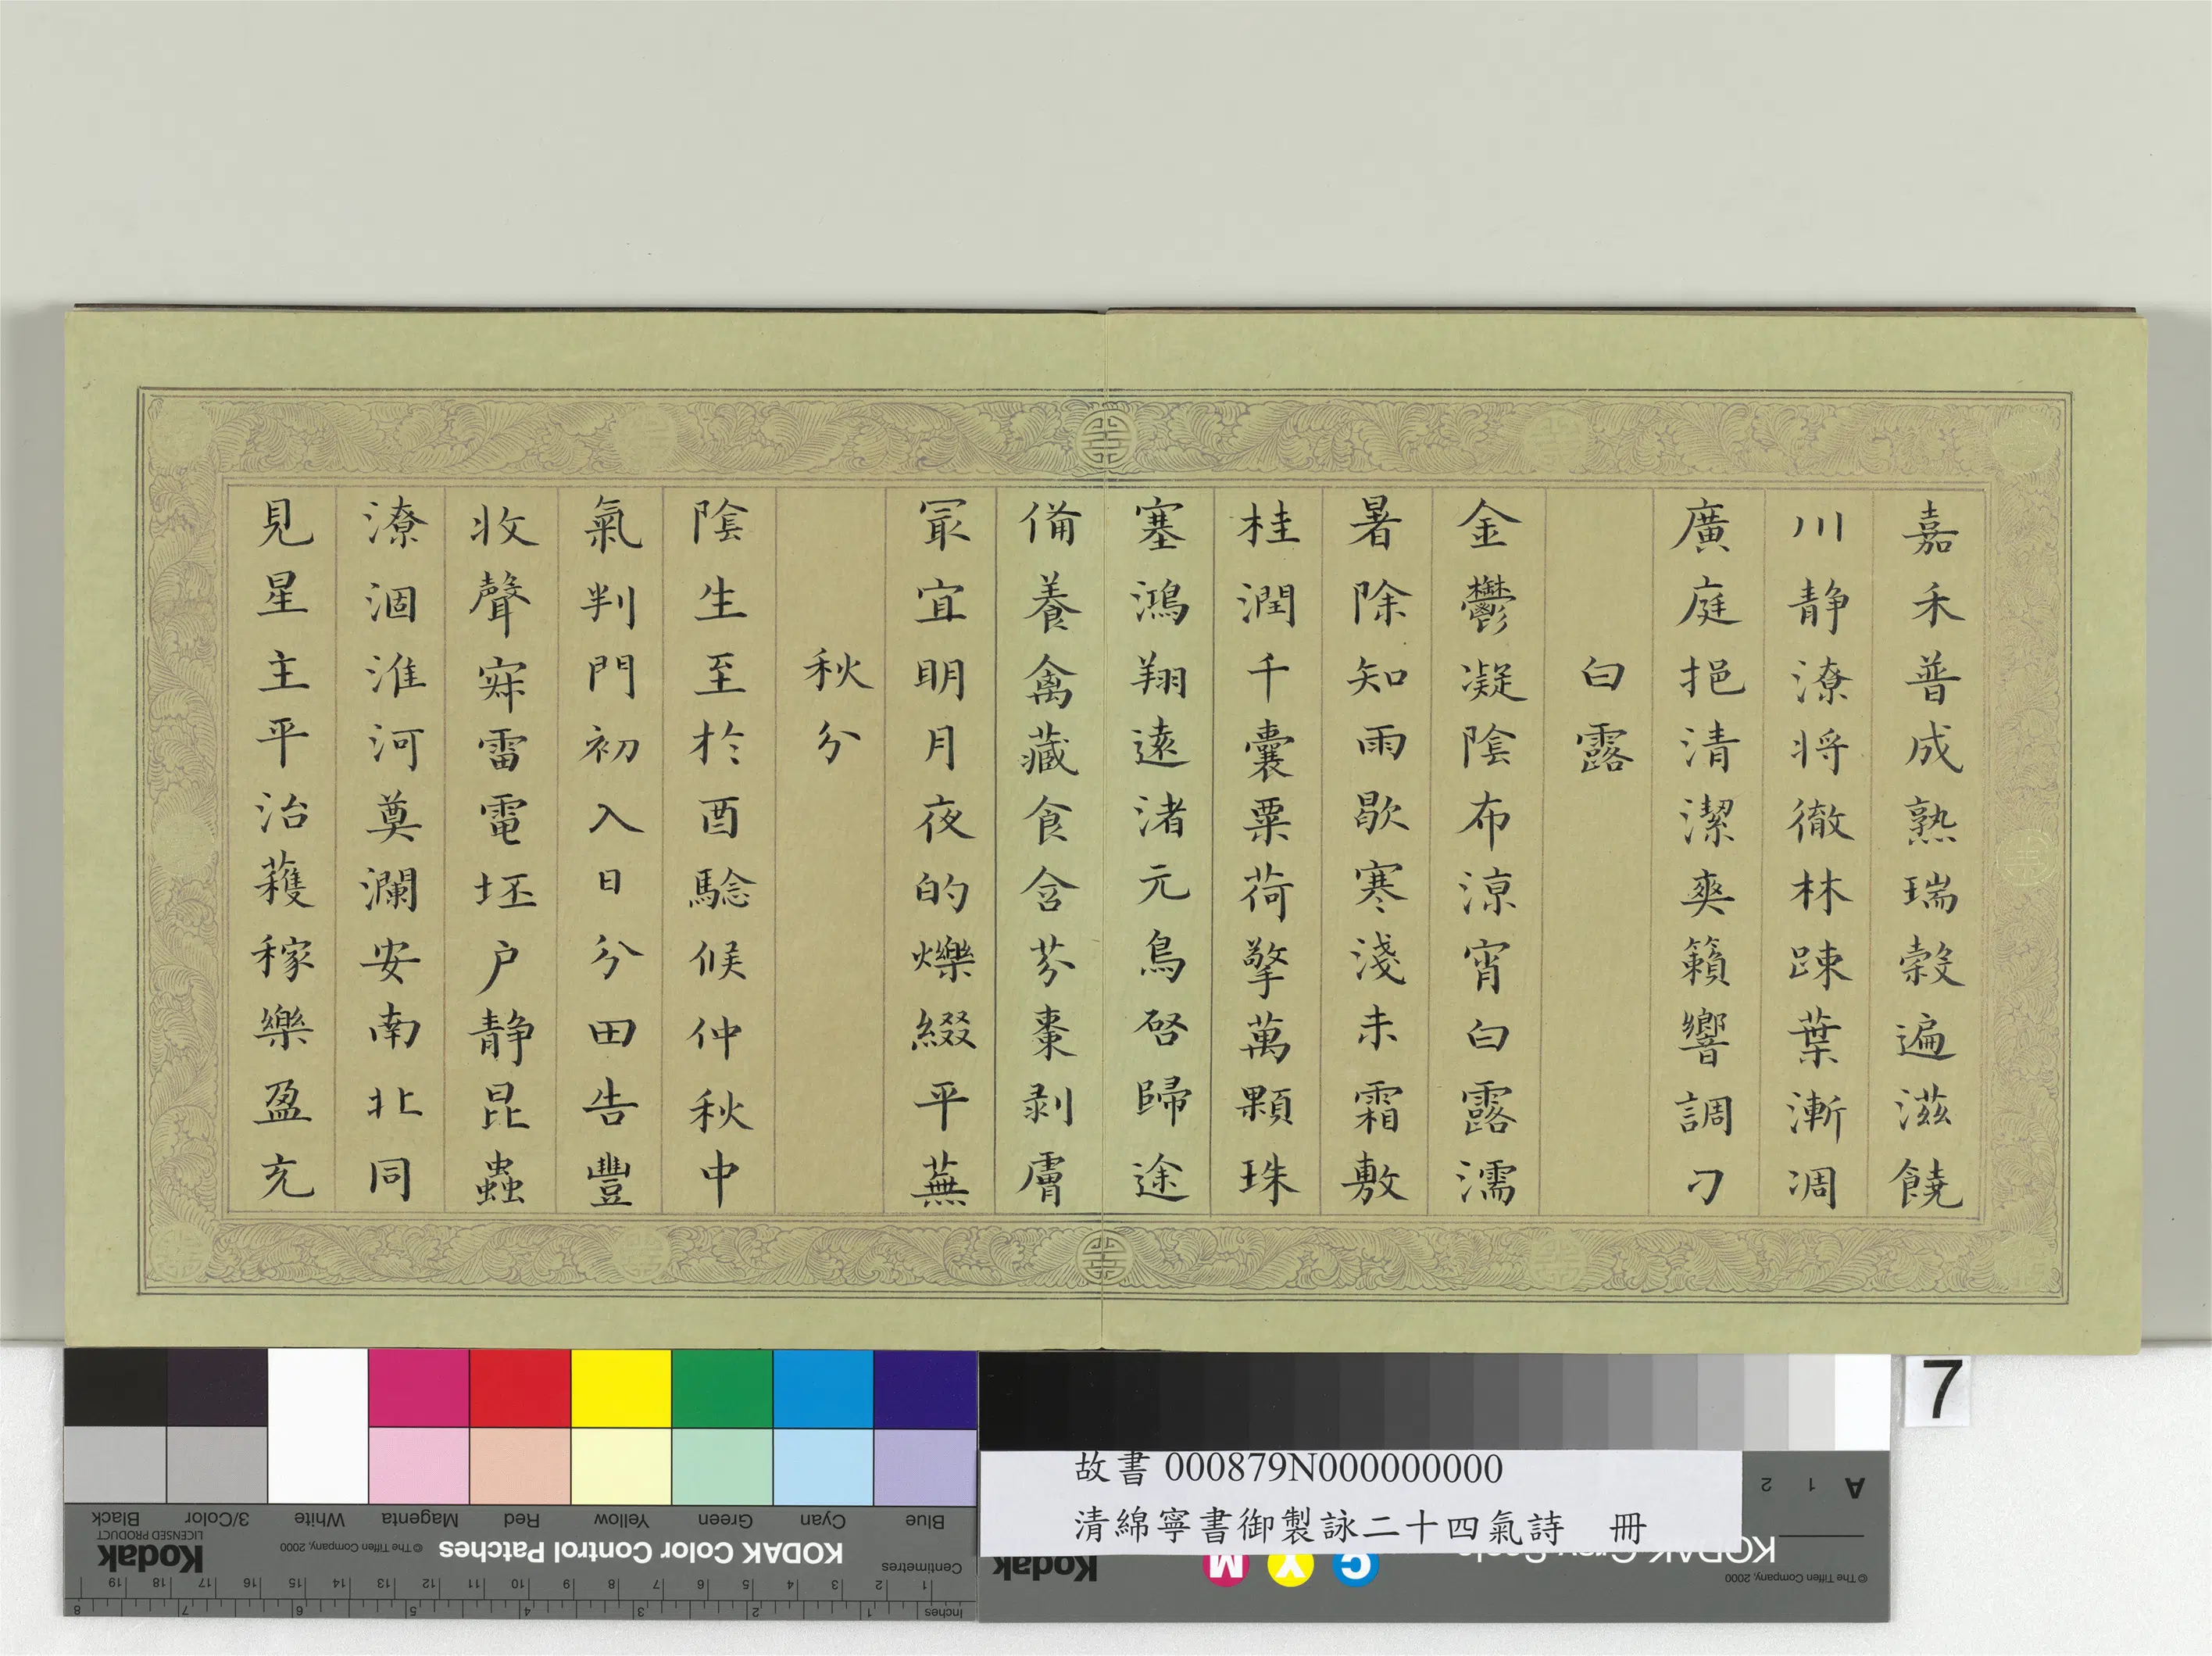 嘉禾普成熟瑞穀遍滋饒
川静潦將徹林踈葉漸凋
廣庭挹清潔爽籟響調刁
白露
金鬱凝陰布涼宵白露濡
暑除知雨歇寒淺未霜敷
桂潤千囊粟荷擎萬顆珠
塞鴻翔遠渚元鳥啓歸途
備養禽藏食含芬棗剥膚
冣宜明月夜的爍綴平蕪
秋分
陰生至於酉驗候仲秋中
氣判門初入日分田告豐
收聲寀雷電坯户静昆蟲
潦涸淮河奠瀾安南北同
見星主平治蓻稼樂盈充
故書 000879N000000000
清綿寧書御製詠二十四氣詩 冊
7
Blue
Cyan
Green
Yellow
Red
Magenta
White
3/Color
Black
KODAK Color Control Patches
© The Tiffen Company, 2000
Kodak
LICENSED PRODUCT
Centimetres
1 2 3 4 5 6 7 8 9 10 11 12 13 14 15 16 17 18 19
Inches
1 2 3 4 5 6 7 8
A 1 2
© The Tiffen Company, 2000
C Y M
Kodak